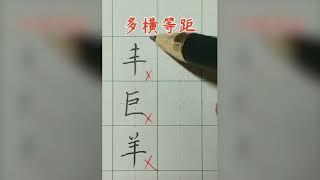 多横等距
丰
巨
羊